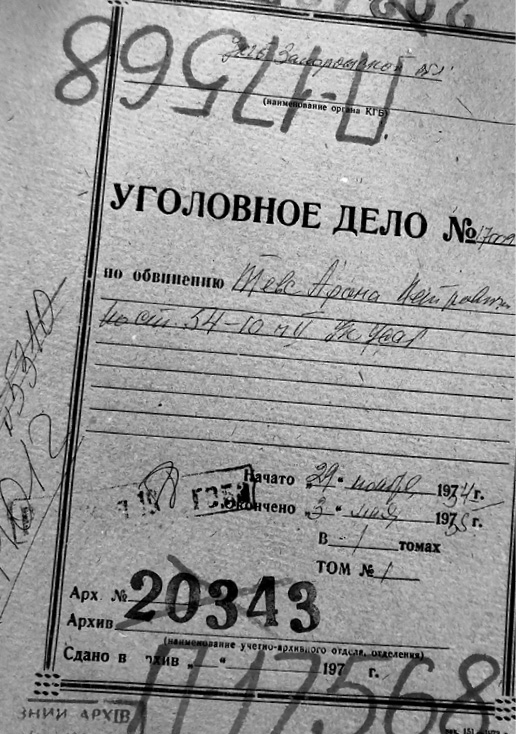 П-17568
(наименование органа КГБ)
УГОЛОВНОЕ ДЕЛО №
по обвинению Тевс Арона Петровича
по ст. 54-10 ч. УК УССР
Начато „29“ 1934 г.
Окончено „3“ мая 1935 г.
В 1 томах
ТОМ № 1
Арх. № 20343
Архив
(наименование учетно-архивного отдела, отделения)
Сдано в архив „ “ 197 г.
П17568
АРХІВ